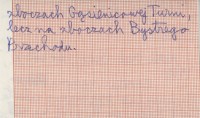 zboczach Gąsienicowej Turni,
lecz na zboczach Bystrego
Przechodu.